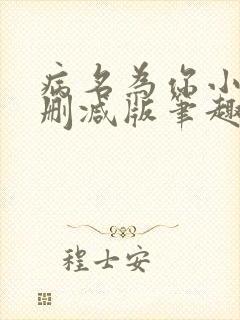 病名为你小
删减版笔趣
程士安